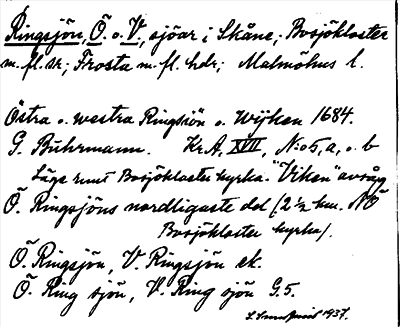 Ringsjön, Ö. o. V., sjöar i Skåne, Bosjökloster
m. fl. sk; Frosta m. fl. hdr; Malmöhus l.
Östra o. westra Ringsiön o. Wijken 1684.
G. Buhrmann. Kr.A, XVII, N:o 5, a, o. b
Läge runt Bosjökloster kyrka. "Viken" avsåg
Ö. Ringsjöns nordligaste del (2 ½ km. NÖ
Bosjökloster kyrka).
Ö. Ringsjön, V. Ringsjön ek.
Ö. Ring sjön, V. Ring sjön G.5.
1937.